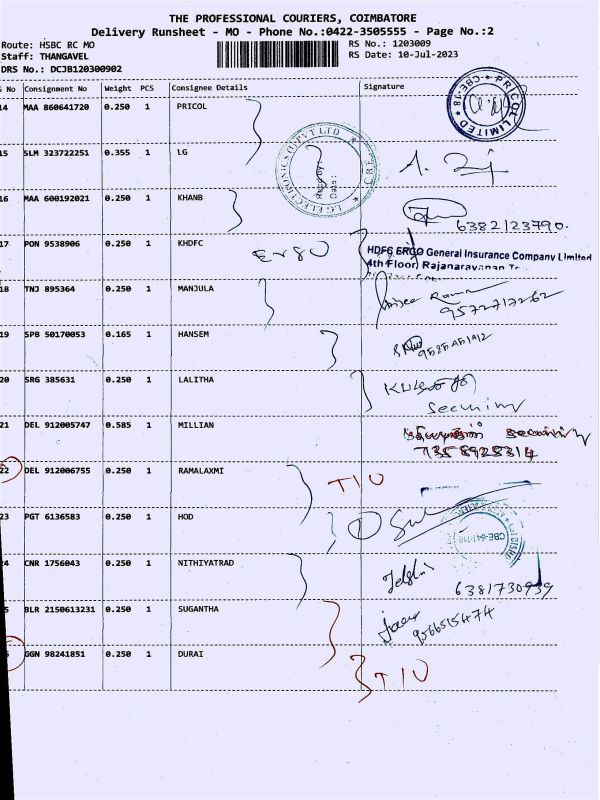 THE PROFESSIONAL COURIERS, COIMBATORE
Delivery Runsheet - MO - Phone No.:0422-3505555 - Page No.:2
Route: HSBC RC MO
RS No.: 1203009
Staff: THANGAVEL
RS Date: 10-Jul-2023
DRS No.: DCJB120300902
S No Consignment No Weight PCS Consignee Details Signature
14 MAA 860641720 0.250 1 PRICOL
PRICOL LIMITED CBE-18
15 SLM 323722251 0.355 1 LG
LG ELECTRONICS (I) PVT LTD CBE
Date:
16 MAA 600192021 0.250 1 KHANB
6382123790
17 PON 9538906 0.250 1 KHDFC
Ergo
HDFC ERGO General Insurance Company Limited
4th Floor, Rajanarayanan
18 TNJ 895364 0.250 1 MANJULA
9572717262
19 SPB 50170053 0.165 1 HANSEM
20 SRG 385631 0.250 1 LALITHA
Security
21 DEL 912005747 0.585 1 MILLIAN
security
7358925314
22 DEL 912006755 0.250 1 RAMALAXMI
TIU
23 PGT 6136583 0.250 1 HOD
24 CNR 1756043 0.250 1 NITHIYATRAD
6381730939
25 BLR 2150613231 0.250 1 SUGANTHA
9566515474
26 GGN 98241851 0.250 1 DURAI
TIU